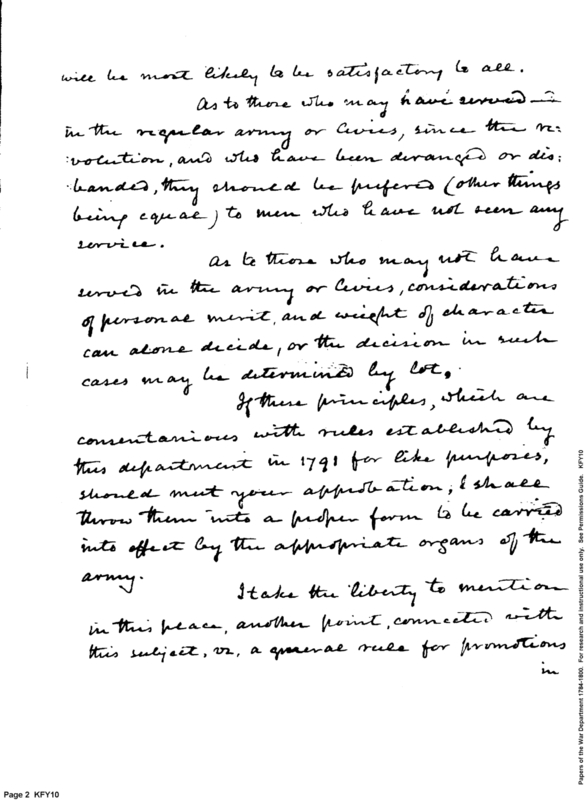 will be most likely to be satisfactory to all.
As to those who may have served
in the regular army or levies, since the re-
:volution, and who have been deranged or dis:
:banded, they should be prefered (other things
being equal) to men who have not seen any
service.
As to those who may not have
served in the army or levies, considerations
of personal merit, and weight of character
can alone decide, or the decision in such
cases may be determined by lot.
If these principles, which are
consentanious with rules established by
this department in 1791 for like purposes,
should meet your approbation, I shall
throw them into a proper form to be carried
into effect by the appropriate organs of the
army.
I take the liberty to mention
in this place, another point, connected with
this subject, vz, a general rule for promotions
in
Page 2 KFY10
Papers of the War Department 1784-1800. For research and instructional use only. See Permissions Guide. KFY10